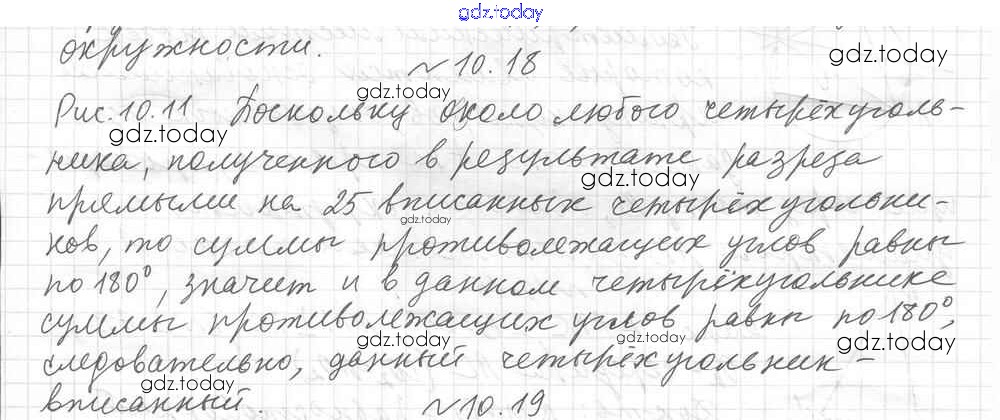 gdz.today
окружности.
№ 10.18
gdz.today
gdz.today
Рис. 10.11 Поскольку около любого четырёхуголь-
gdz.today
gdz.today
ника, полученного в результате разреза
gdz.today
прямыми на 25 вписанных четырёхугольни-
gdz.today
ков, то суммы противолежащих углов равны
по 180°, значит и в данном четырёхугольнике
суммы противолежащих углов равны по 180°,
gdz.today
gdz.today
следовательно, данный четырёхугольник –
gdz.today
gdz.today
вписанный.
№ 10.19